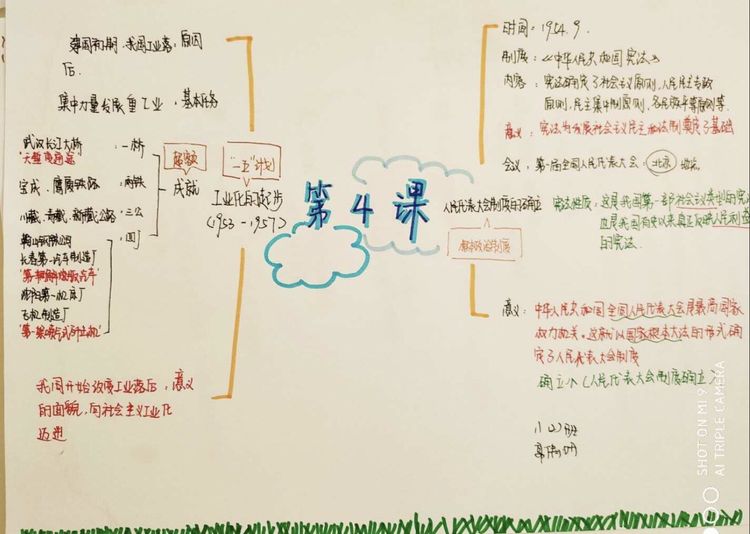 第4课
建国初期,我国工业落:原因
后.
集中力量发展重工业:基本任务
武汉长江大桥:一桥
"天堑变通途"
宝成、鹰厦铁路:两铁
川藏、青藏、新藏公路:三公
长春第一汽车制造厂
沈阳第一机床厂
飞机制造厂
成就
"一五"计划
工业化的起步
(1953-1957)
我国开始改变工业落后:意义
的面貌,向社会主义工业化
迈进
时间:1954.9.
制度:《中华人民共和国宪法》
内容:宪法确定了社会主义原则,人民民主专政
原则,民主集中制原则、各民族平等原则等.
意义:宪法为发展社会主义民主和法制奠定了基础
会议:第一届全国人民代表大会:北京
人民代表大会制度的确立
根本政治制度
宪法性质:这是我国第一部社会主义类型的宪
也是我国有史以来真正反映人民利益
的宪法.
意义:中华人民共和国全国人民代表大会是最高国家
权力机关.这就以国家根本大法的形式确
定了人民代表大会制度
确立(人民代表大会制度确立)
SHOT ON MI 9
AI TRIPLE CAMERA